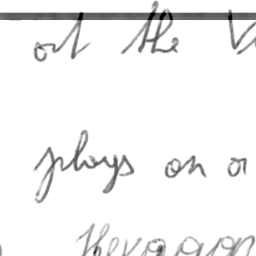 out the
plays on a
Hexagon